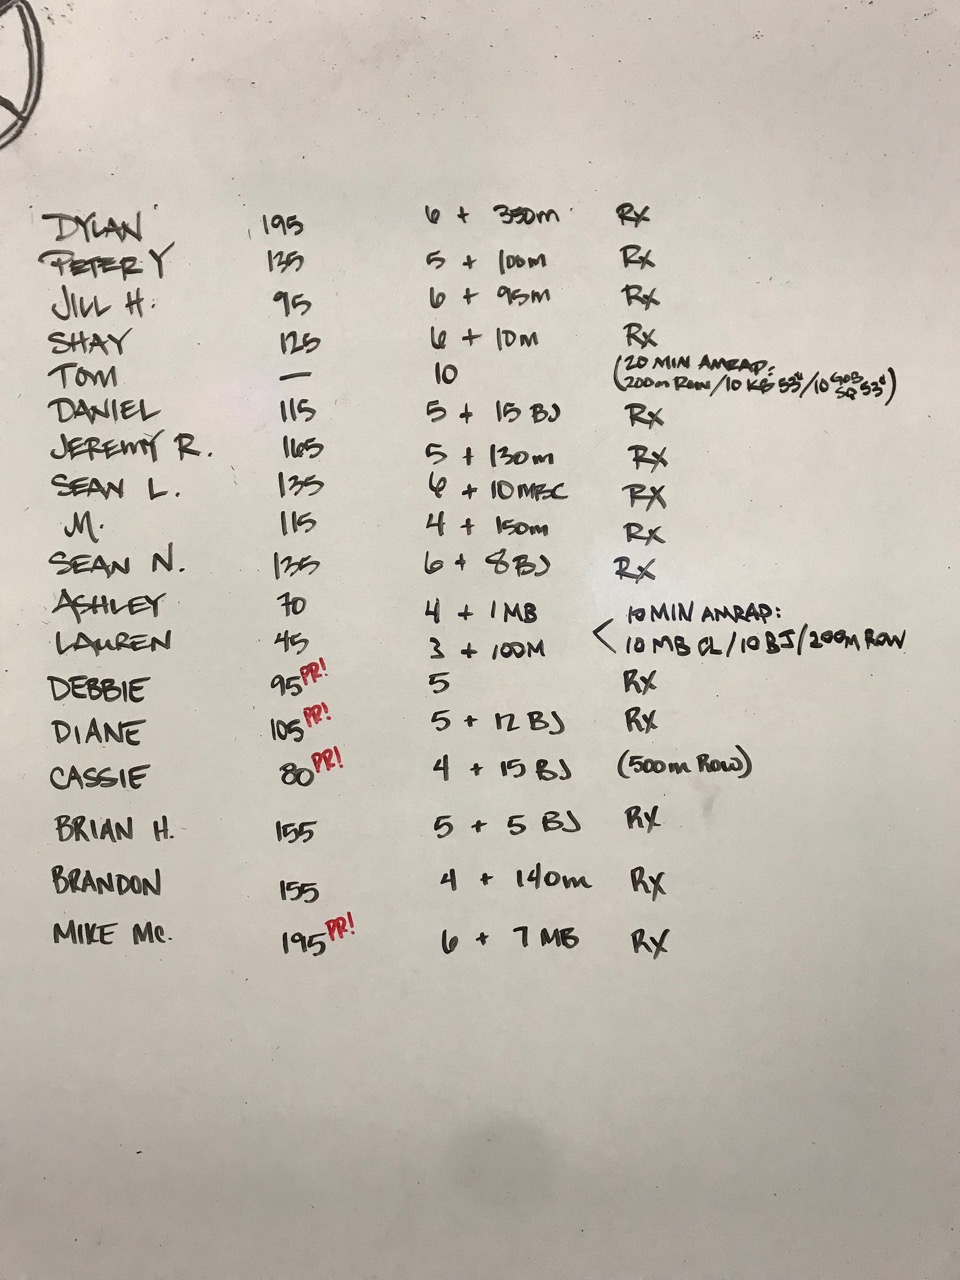 DYLAN 195 6 + 350m Rx
PETER Y 135 5 + 100m Rx
JILL H. 95 6 + 95m Rx
SHAY 125 6 + 10m Rx
TOM — 10 (20 MIN AMRAP:
200m Row/10 KB 53#/10 GOB SQ 53#)
DANIEL 115 5 + 15 BJ Rx
JEREMY R. 165 5 + 130m Rx
SEAN L. 135 6 + 10 MBC Rx
M. 115 4 + 150m Rx
SEAN N. 135 6 + 8 BJ Rx
ASHLEY 70 4 + 1 MB 10 MIN AMRAP:
LAUREN 45 3 + 100M 10 MB CL/10 BJ/200m ROW
DEBBIE 95 PR! 5 Rx
DIANE 105 PR! 5 + 12 BJ Rx
CASSIE 80 PR! 4 + 15 BJ (500m Row)
BRIAN H. 155 5 + 5 BJ Rx
BRANDON 155 4 + 140m Rx
MIKE MC. 195 PR! 6 + 7 MB Rx